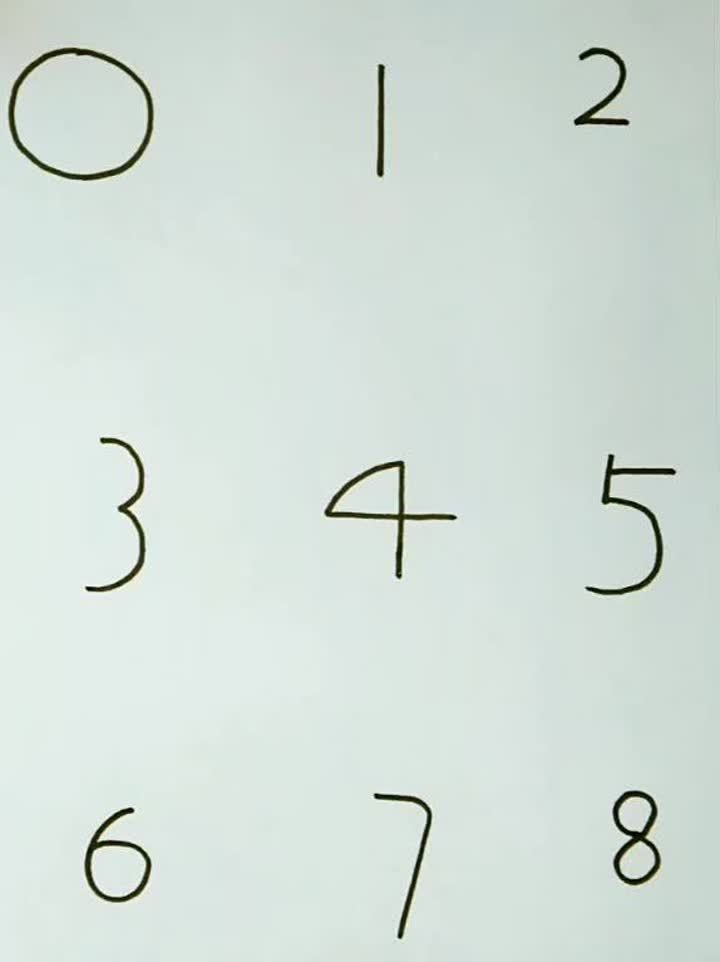 0 1 2
3 4 5
6 7 8